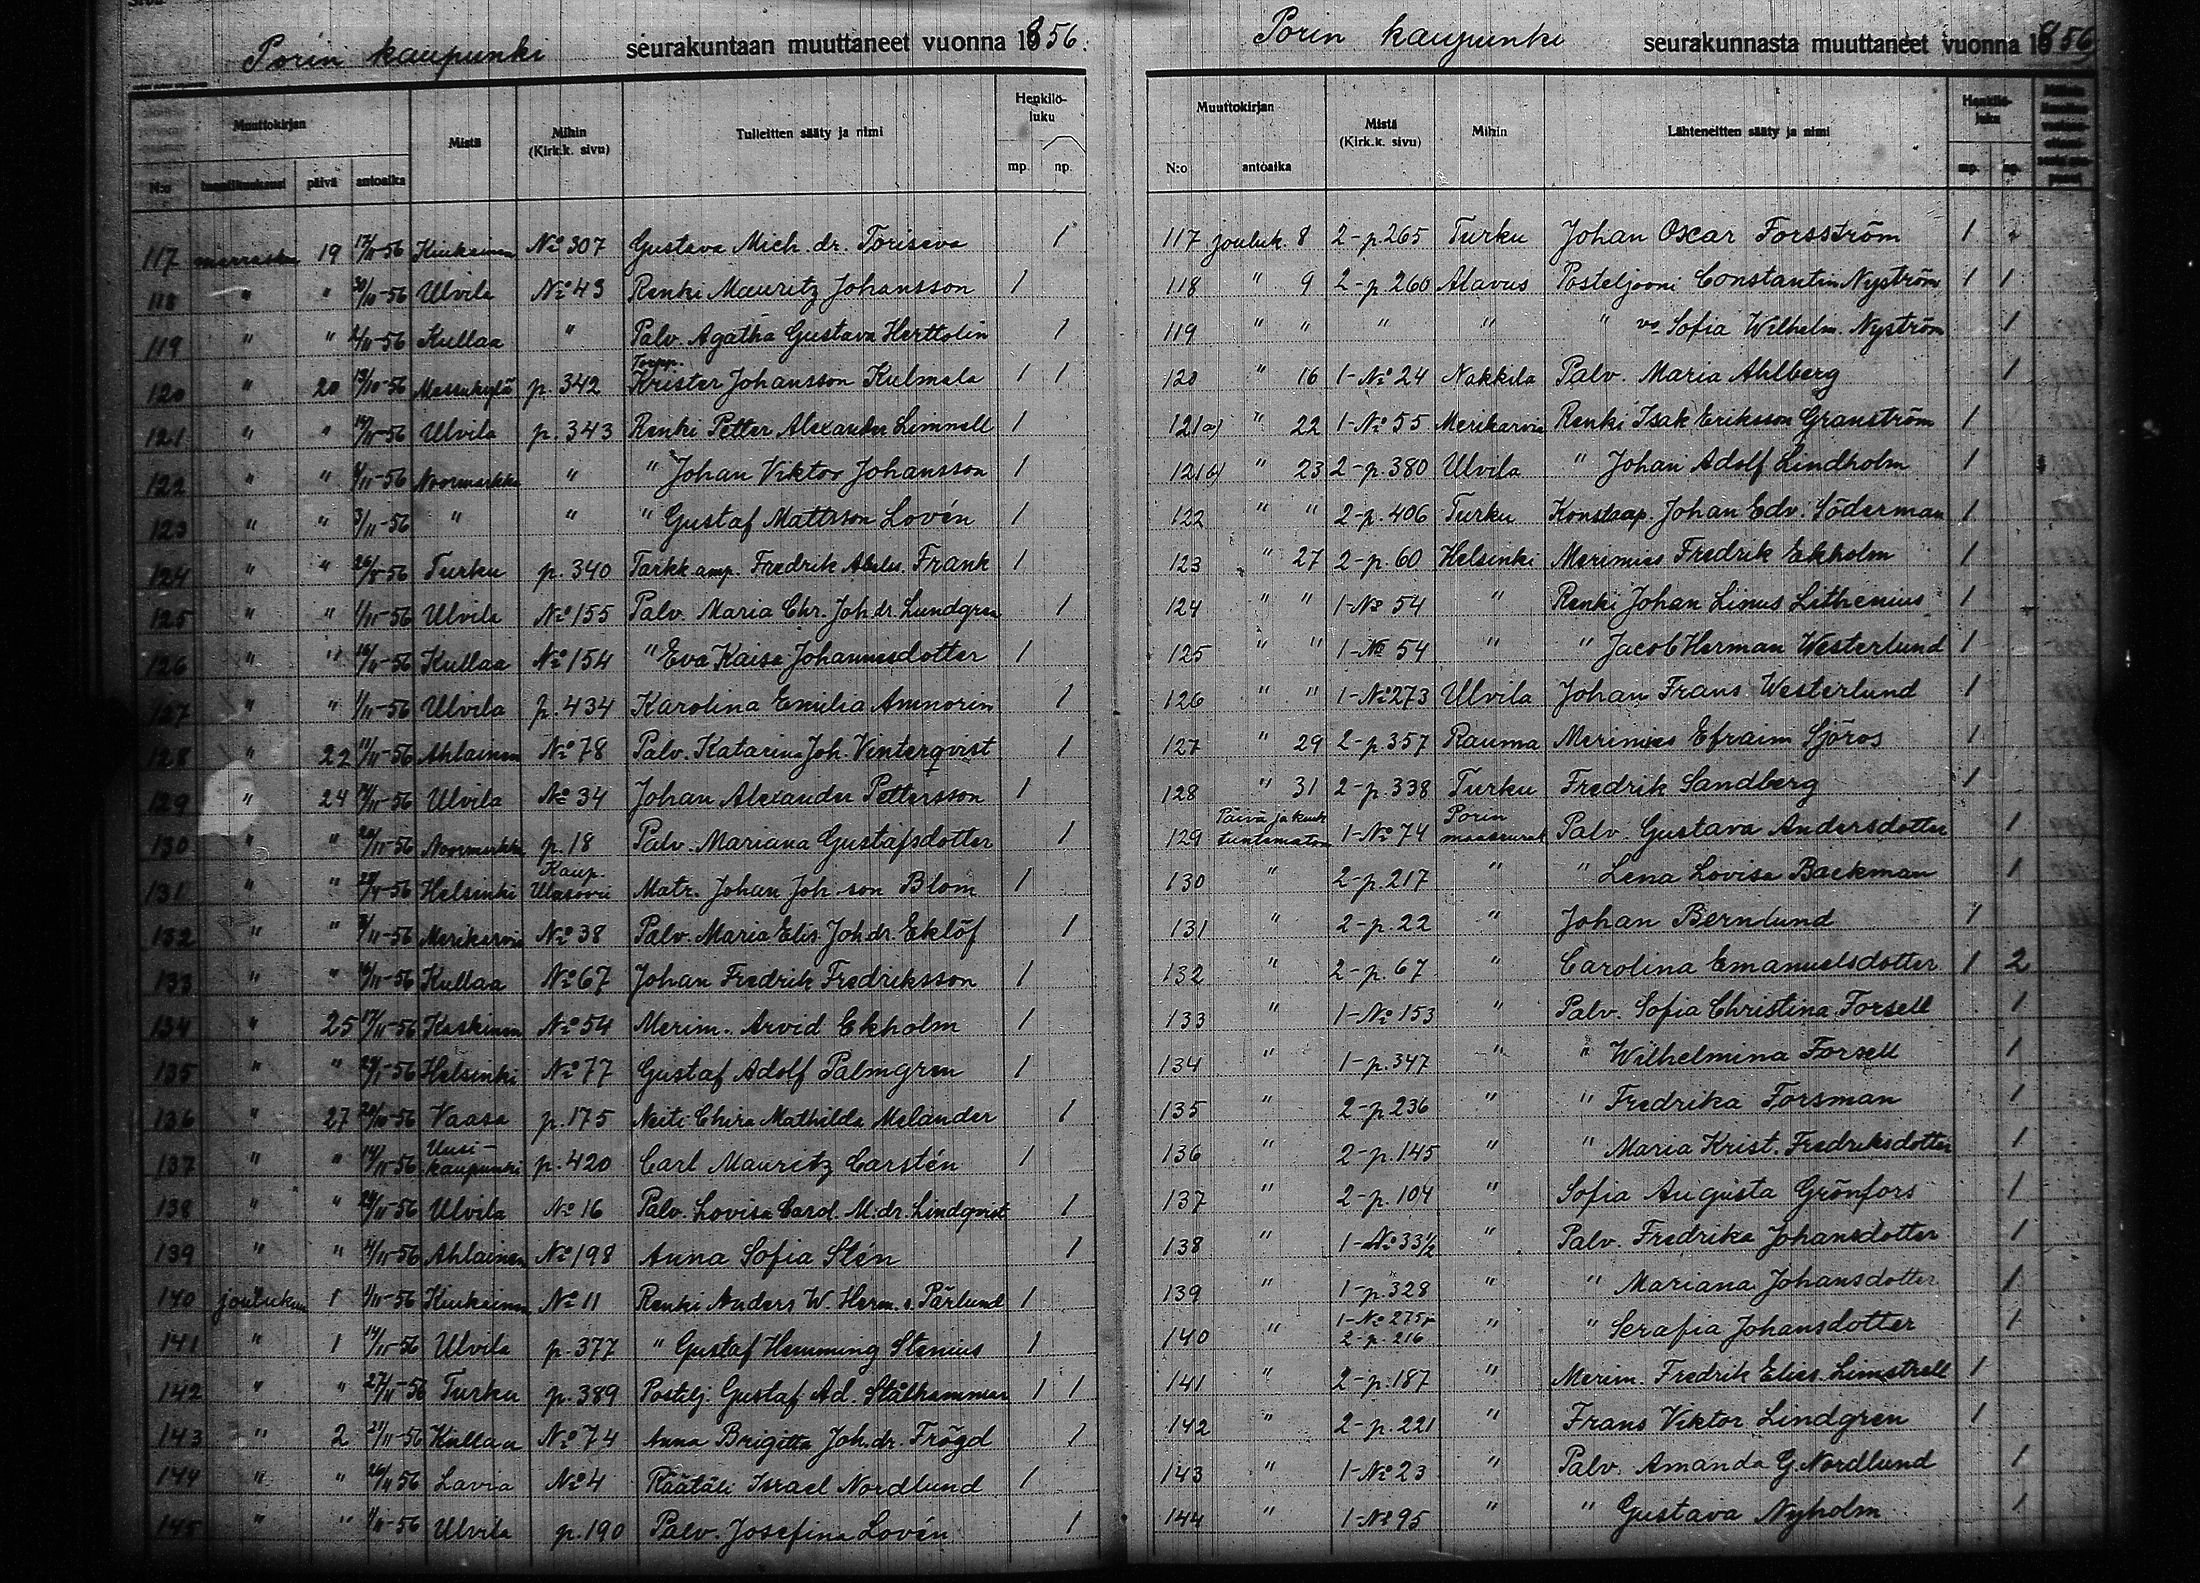 Porin kaupunki seurakuntaan muuttaneet vuonna 1856.
Muuttokirjan Mistä Mihin (Kirk.k. sivu) Tulleitten sääty ja nimi Henkilö-luku
N:o päivä antoaika mp. np.
117 marrask. 19 17/11-56 Kiukainen No 307 Gustava Mich. dr. Toriseva 1
118 " " 30/10-56 Ulvila No 43 Renki Mauritz Johansson 1
119 " " /11-56 Kullaa " Palv. Agatha Gustava Herttolin 1
120 " 20 /10-56 Messukylä p. 342 Torpp. Krister Johansson Kulmala 1 1
121 " " /11-56 Ulvila p. 343 Renki Petter Alexander Limnell 1
122 " " /11-56 Noormarkku " " Johan Viktor Johansson 1
123 " " 3/11-56 " " " Gustaf Mattsson Lovén 1
124 " " -56 Turku p. 340 Tarkk.amp. Fredrik Frank 1
125 " " 1/11-56 Ulvila No 155 Palv. Maria Chr. Joh.dr. Lundgren 1
126 " " /11-56 Kullaa No 154 " Eva Kaisa Johannesdotter 1
127 " " 1/11-56 Ulvila p. 434 Karolina Emilia Amnorin 1
128 " 22 /11-56 Ahlainen No 78 Palv. Katarina Joh. Vinterqvist 1
129 " 24 /11-56 Ulvila No 34 Johan Alexander Pettersson 1
130 " " /11-56 Noormarkku p. 18 Palv. Mariana Gustafsdotter 1
131 " " -56 Helsinki Kaup. Ulasoori Matr. Johan Joh.-son Blom 1
132 " " /11-56 Merikarvia No 38 Palv. Maria Elis. Joh.dr. Eklöf 1
133 " " /11-56 Kullaa No 67 Johan Fredrik Fredriksson 1
134 " 25 17/11-56 Kaskinen No 54 Merim. Arvid Ekholm 1
135 " " -56 Helsinki No 77 Gustaf Adolf Palmgren 1
136 " 27 /10-56 Vaasa p. 175 Neiti Chira Mathilda Melander 1
137 " " 14/11-56 Uusi-kaupunki p. 420 Carl Mauritz Carstén 1
138 " " /11-56 Ulvila No 16 Palv. Lovisa Carol. M.dr. Lindqvist 1
139 " " /11-56 Ahlainen No 198 Anna Sofia Stén 1
140 joulukuu 1 /11-56 Kiukainen No 11 Renki Anders W. Herm. s. Pärlund 1
141 " 1 14/11-56 Ulvila p. 377 " Gustaf Hemming Stenius 1
142 " " 27/11-56 Turku p. 389 Postilj. Gustaf Ad. Stålhammar 1 1
143 " 2 21/11-56 Kullaa No 74 Anna Brigitta Joh.dr. Frögd 1
144 " " 26/11 56 Lavia No 4 Räätäli Israel Nordlund 1
145 " " -56 Ulvila p. 190 Palv. Josefina Lovén 1
Porin kaupunki seurakunnasta muuttaneet vuonna 1856
Muuttokirjan Mistä (Kirk.k. sivu) Mihin Lähteneitten sääty ja nimi Henkilö-luku
N:o antoaika mp. np.
117 jouluk. 8 2-p.265 Turku Johan Oscar Forsström 1
118 " 9 2-p.260 Alavus Posteljooni Constantin Nyström 1 1
119 " " " " " vo Sofia Wilhelm. Nyström 1
120 " 16 1-No 24 Nakkila Palv. Maria Ahlberg 1
121a) " 22 1-No 55 Merikarvia Renki Isak Eriksson Granström 1
121b) " 23 2-p. 380 Ulvila " Johan Adolf Lindholm 1
122 " " 2-p. 406 Turku Konstaap. Johan Edv. Söderman 1
123 " 27 2-p. 60 Helsinki Merimies Fredrik Ekholm 1
124 " " 1-No 54 " Renki Johan Linus Lithenius 1
125 " " 1-No 54 " " Jacob Herman Westerlund 1
126 " " 1-No 273 Ulvila Johan Frans Westerlund 1
127 " 29 2-p.357 Rauma Merimies Efraim Sjöros 1
128 " 31 2-p.338 Turku Fredrik Sandberg 1
129 Päivä ja kuuk. tuntematon 1-No 74 Porin maaseurak. Palv. Gustava Andersdotter 1
130 " 2-p.217 " " Lena Lovisa Backman 1
131 " 2-p.22 " Johan Bernlund 1
132 " 2-p.67 " Carolina Emanuelsdotter 1 2
133 " 1-No 153 " Palv. Sofia Christina Forsell 1
134 " 1-p.347 " " Wilhelmina Forsell 1
135 " 2-p.236 " " Fredrika Forsman 1
136 " 2-p.145 " " Maria Krist. Fredriksdotter 1
137 " 2-p.104 " Sofia Augusta Grönfors 1
138 " 1-No 33 1/2 " Palv. Fredrika Johansdotter 1
139 " 1-p.328 " " Mariana Johansdotter 1
140 " 1-No 275 2-p.216 " " Serafia Johansdotter 1
141 " 2-p.187 " Merim. Fredrik Elias Limstrell 1
142 " 2-p.221 " Frans Viktor Lindgren 1
143 " 1-No 23 " Palv. Amanda G. Nordlund 1
144 " 1-No 95 " " Gustava Nyholm 1